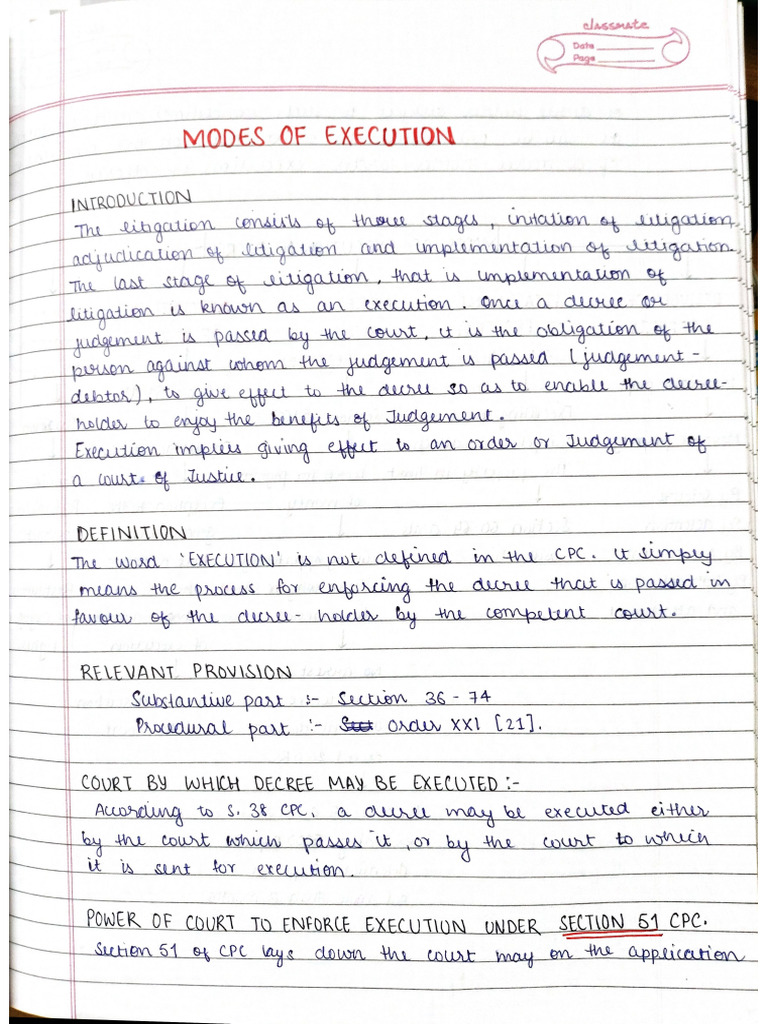 classmate
Date
Page
MODES OF EXECUTION
INTRODUCTION
The litigation consists of three stages, initation of litigation,
adjudication of litigation and implementation of litigation.
The last stage of litigation, that is implementation of
litigation is known as an execution. Once a decree or
judgement is passed by the court, it is the obligation of the
person against whom the judgement is passed (judgement-
debtor), to give effect to the decree so as to enable the decree-
holder to enjoy the benefits of Judgement.
Execution implies giving effect to an order or Judgement of
a court of Justice.
DEFINITION
The word 'EXECUTION' is not defined in the CPC. It simply
means the process for enforcing the decree that is passed in
favour of the decree-holder by the competent court.
RELEVANT PROVISION
Substantive part :- Section 36 - 74
Procedural part :- Order XXI [21].
COURT BY WHICH DECREE MAY BE EXECUTED :-
According to S. 38 CPC, a decree may be executed either
by the court which passes it, or by the court to which
it is sent for execution.
POWER OF COURT TO ENFORCE EXECUTION UNDER SECTION 51 CPC.
Section 51 of CPC lays down the court may on the application